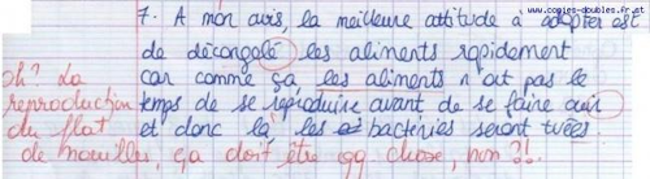 www.copies-doubles.fr.st
7. A mon avis, la meilleure attitude à adopter est
de décongelé les aliments rapidement
car comme ça les aliments n'ont pas le
temps de se reproduire avant de se faire cuir
et donc là, les bactéries seront tuées.
oh? La
reproduction
du plat
de nouilles, ça doit être qq chose, non ?!.